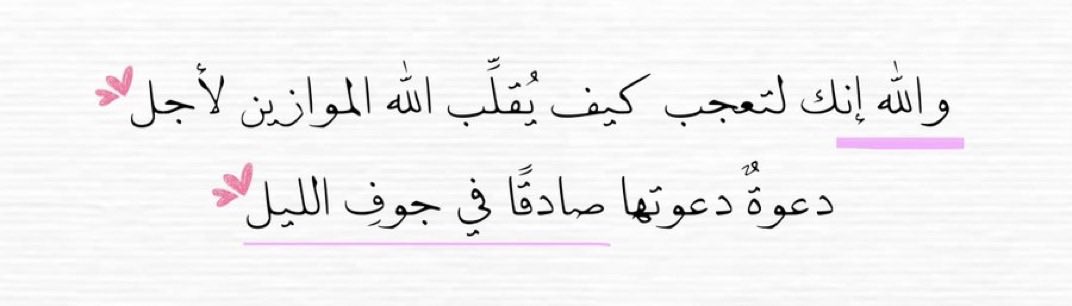 والله إنك لتعجب كيف يُقلِّب الله الموازين لأجل
دعوةٌ دعوتها صادقًا في جوفِ الليل